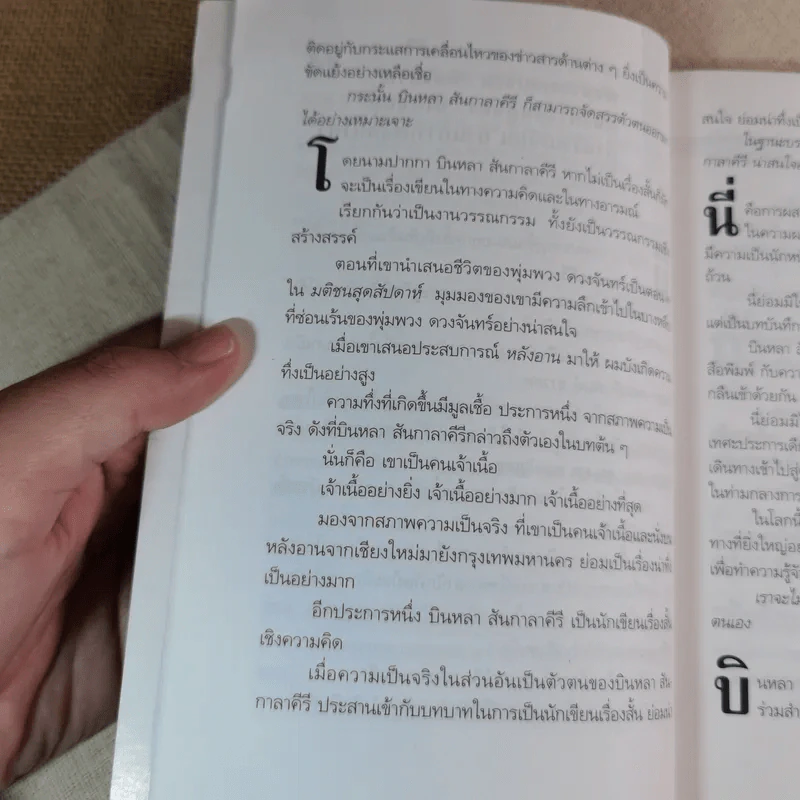 ติดอยู่กับกระแสการเคลื่อนไหวของข่าวสารด้านต่าง ๆ ยิ่งเป็นความ
ขัดแย้งอย่างเหลือเชื่อ
กระนั้น บินหลา สันกาลาคีรี ก็สามารถจัดสรรตัวตนออกมา
ได้อย่างเหมาะเจาะ
โดยนามปากกา บินหลา สันกาลาคีรี หากไม่เป็นเรื่องสั้นก็
จะเป็นเรื่องเขียนในทางความคิดและในทางอารมณ์
เรียกกันว่าเป็นงานวรรณกรรม ทั้งยังเป็นวรรณกรรม
สร้างสรรค์
ตอนที่เขานำเสนอชีวิตของพุ่มพวง ดวงจันทร์เป็นตอน
ใน มติชนสุดสัปดาห์ มุมมองของเขามีความลึกเข้าไปในบาง
ที่ซ่อนเร้นของพุ่มพวง ดวงจันทร์อย่างน่าสนใจ
เมื่อเขาเสนอประสบการณ์ หลังอาน มาให้ ผมบังเกิดความ
ทึ่งเป็นอย่างสูง
ความทึ่งที่เกิดขึ้นมีมูลเชื้อ ประการหนึ่ง จากสภาพความเป็น
จริง ดังที่บินหลา สันกาลาคีรีกล่าวถึงตัวเองในบทต้น ๆ
นั่นก็คือ เขาเป็นคนเจ้าเนื้อ
เจ้าเนื้ออย่างยิ่ง เจ้าเนื้ออย่างมาก เจ้าเนื้ออย่างที่สุด
มองจากสภาพความเป็นจริง ที่เขาเป็นคนเจ้าเนื้อและนั่งบน
หลังอานจากเชียงใหม่มายังกรุงเทพมหานคร ย่อมเป็นเรื่องน่าทึ่ง
เป็นอย่างมาก
อีกประการหนึ่ง บินหลา สันกาลาคีรี เป็นนักเขียนเรื่องสั้น
เชิงความคิด
เมื่อความเป็นจริงในส่วนอันเป็นตัวตนของบินหลา สัน
กาลาคีรี ประสานเข้ากับบทบาทในการเป็นนักเขียนเรื่องสั้น ย่อม
สนใจ ย่อมน่าทึ่งเป็
ในฐานะบร
กาลาคีรี น่าสนใจ
นี่คือการผส
ในความผ
มีความเป็นนักห
ถ้วน
นี่ย่อมมิใ
แต่เป็นบทบันทึก
บินหลา สั
สือพิมพ์ กับความ
กลืนเข้าด้วยกัน
นี่ย่อมมิใ
เทศะประการเดี
เดินทางเข้าไปสู่
ในท่ามกลางการ
ในโลกนี้
ทางที่ยิ่งใหญ่อย
เพื่อทำความรู้จั
เราจะไม่
ตนเอง
บินหลา
ร่วมสำ